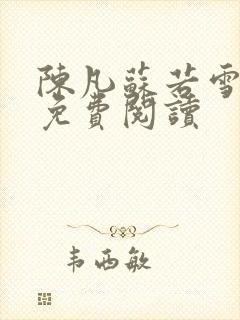 陳凡蘇若雪
免費閱讀
韦西敏